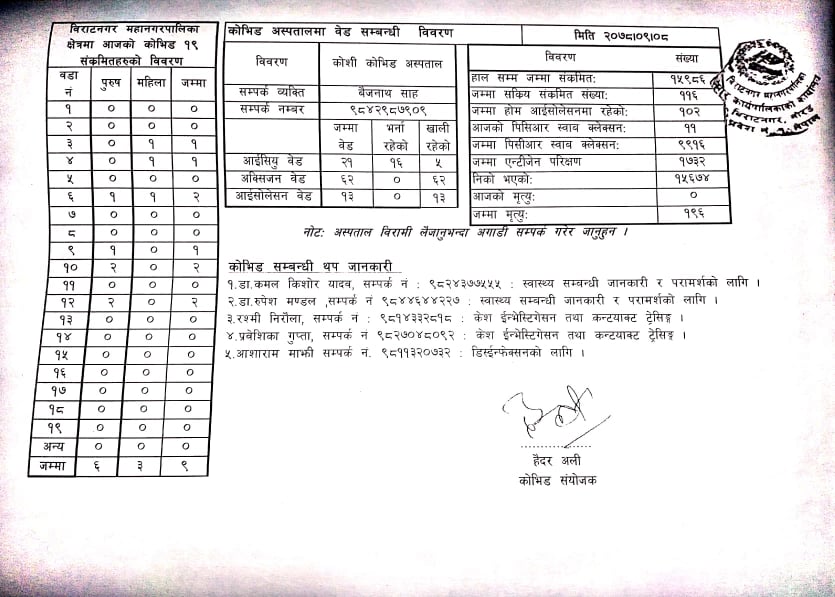 विराटनगर महानगरपालिका
क्षेत्रमा आजको कोभिड १९
संक्रमितहरुको विवरण
वडा नं पुरुष महिला जम्मा
१ ० ० ०
२ ० ० ०
३ ० १ १
४ ० १ १
५ ० ० ०
६ १ १ २
७ ० ० ०
८ ० ० ०
९ १ ० १
१० २ ० २
११ ० ० ०
१२ २ ० २
१३ ० ० ०
१४ ० ० ०
१५ ० ० ०
१६ ० ० ०
१७ ० ० ०
१८ ० ० ०
१९ ० ० ०
अन्य ० ० ०
जम्मा ६ ३ ९
कोभिड अस्पतालमा वेड सम्बन्धी विवरण
मिति २०७८।०९।०८
विवरण कोशी कोभिड अस्पताल
सम्पर्क व्यक्ति बैजनाथ साह
सम्पर्क नम्बर ९८४२९८७९०९
जम्मा वेड भर्ना रहेको खाली रहेको
आईसियु वेड २१ १६ ५
अक्सिजन वेड ६२ ० ६२
आईसोलेसन वेड १३ ० १३
विवरण संख्या
हाल सम्म जम्मा संक्रमित: १५९८६
जम्मा सक्रिय संक्रमित संख्या: ११६
जम्मा होम आईसोलेसनमा रहेको: १०२
आजको पिसिआर स्वाब क्लेक्सन: ११
जम्मा पिसीआर स्वाब क्लेक्सन: ९९१६
जम्मा एन्टीजेन परिक्षण १७३२
निको भएको: १५६७४
आजको मृत्यु: ०
जम्मा मृत्यु: १९६
नोट: अस्पताल विरामी लैजानुभन्दा अगाडी सम्पर्क गरेर जानुहुन ।
कोभिड सम्बन्धी थप जानकारी
१.डा.कमल किशोर यादव, सम्पर्क नं : ९८२४३७७५५५ : स्वास्थ्य सम्बन्धी जानकारी र परामर्शको लागि ।
२.डा.रुपेश मण्डल ,सम्पर्क नं ९८४४६४४२२७ : स्वास्थ्य सम्बन्धी जानकारी र परामर्शको लागि ।
३.रश्मी निरौला, सम्पर्क नं : ९८१४३३२८१८ : केश ईन्भेस्टिगेसन तथा कन्टयाक्ट ट्रेसिङ्ग ।
४.प्रवेशिका गुप्ता, सम्पर्क नं : ९८२७०४८०९२ : केश ईन्भेस्टिगेसन तथा कन्टयाक्ट ट्रेसिङ्ग ।
५.आशाराम माझी सम्पर्क नं. ९८११३२०७३२ : डिस्ईन्फेक्सनको लागि ।
हैदर अली
कोभिड संयोजक